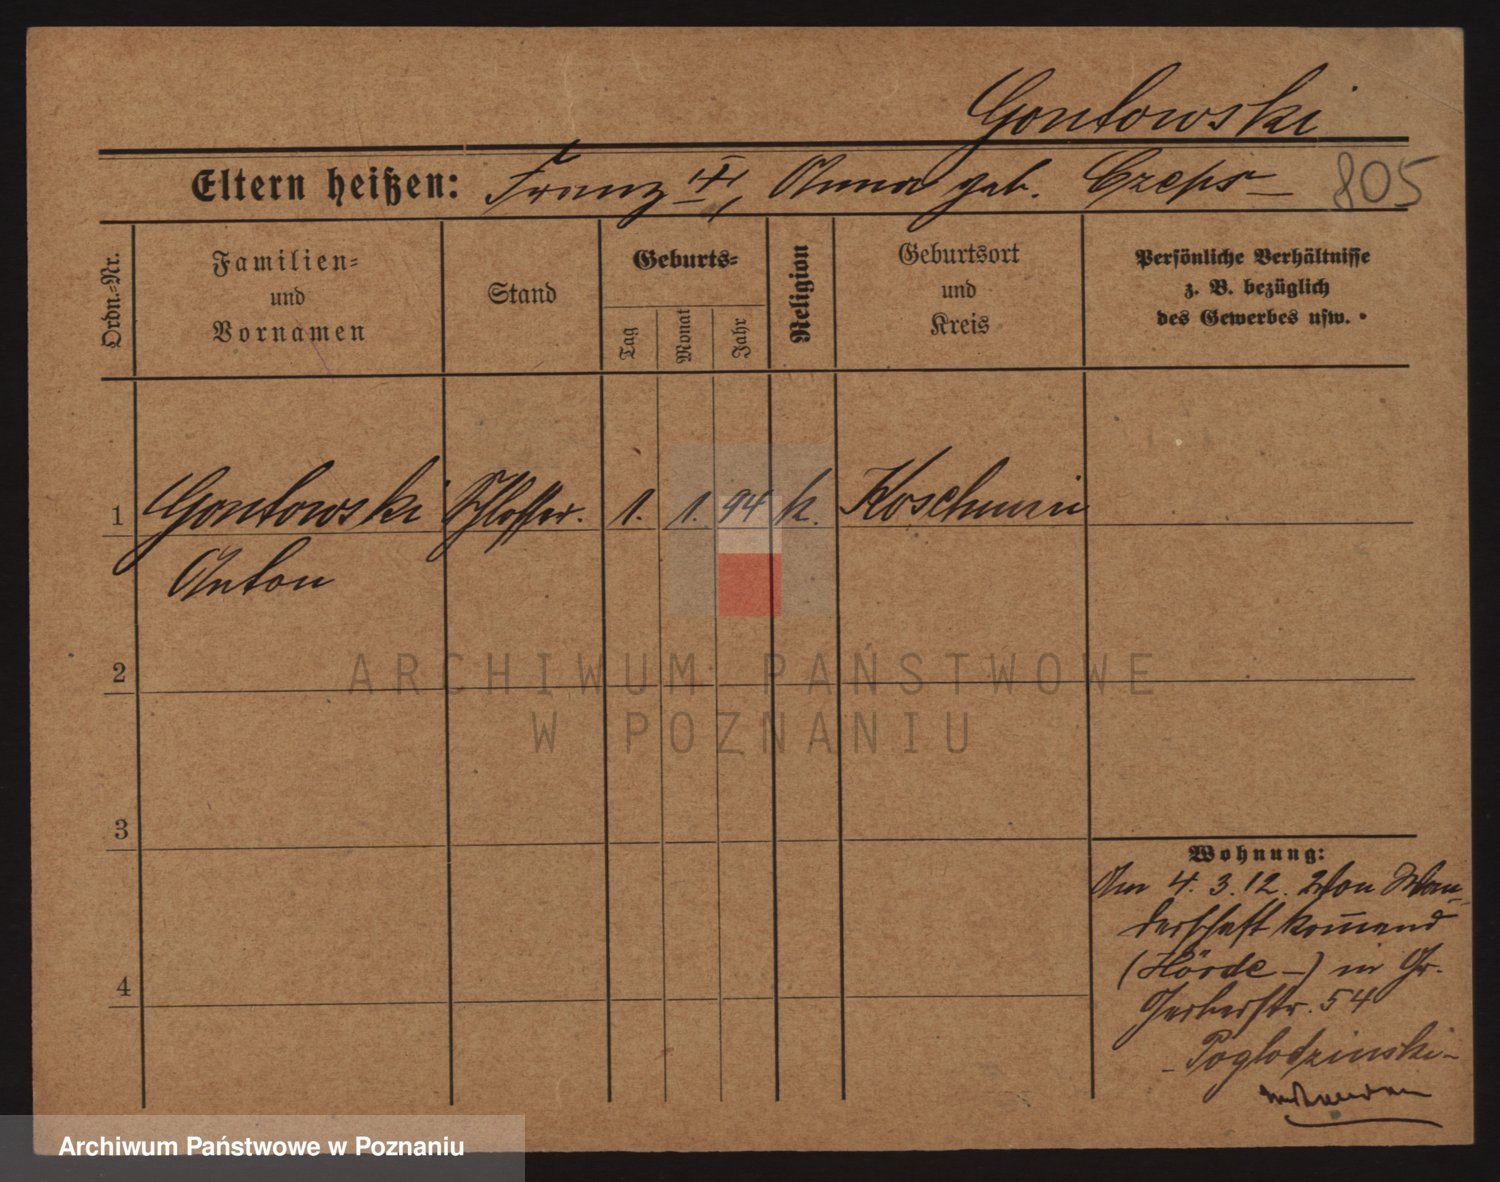 Gontowski
Eltern heißen: Franz, Anna geb. Czeps 805
Ordn.-Nr.
Familien-
und
Vornamen
Stand
Geburts-
Tag
Monat
Jahr
Religion
Geburtsort
und
Kreis
Persönliche Verhältnisse
z. B. bezüglich
des Gewerbes usw.
1 Gontowski Schlosser. 1. 1. 94 k. Koschmin
Anton
ARCHIWUM PAŃSTWOWE
W POZNANIU
2
3
4
Wohnung:
Am 4. 3. 12. Von Wan-
derschaft kommend
(Hörde -) in Gr.
Gerberstr. 54
Archiwum Państwowe w Poznaniu